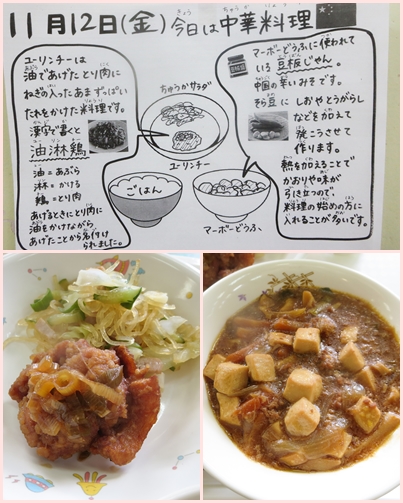 11月12日(金)今日は中華料理
ユーリンチーは
油であげたとり肉に
ねぎの入ったあまずっぱい
たれをかけた料理です。
漢字で書くと
油淋鶏
油=あぶら
淋=かける
鶏=とり肉
あげるときにとり肉に
油をかけながら
あげたことから名付け
られました。
ちゅうかサラダ
ユーリンチー
ごはん
マーボーどうふ
マーボーどうふに使われて
いる豆板じゃん。
中国の辛いみそです。
そら豆に しおやとうがらし
などを加えて
発こうさせて
作ります。
熱を加えることで
かおりや味が
引き立つので、
料理の始めの方に
入れることが多いです。